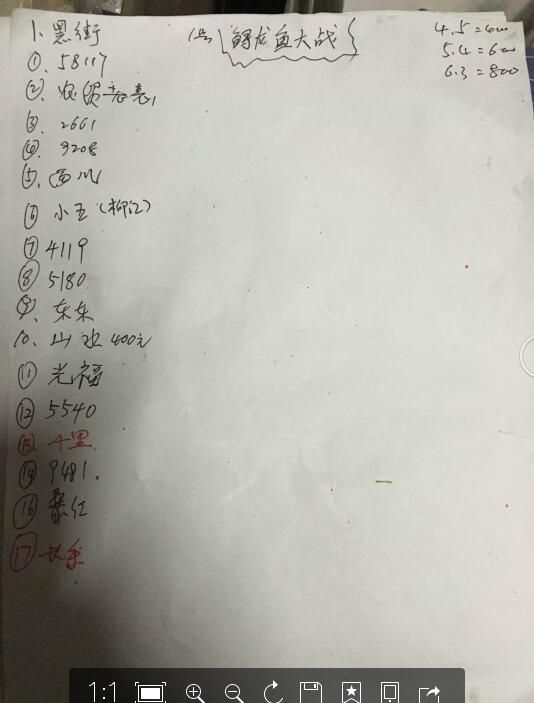 1号 鲟龙鱼大战
4.5=400
5.4=600
6.3=800
1、黑街
①、58117
②、
③、2661
④、9208
⑤、西川
⑥ 小五(柳江)
⑦ 4119
⑧ 5180
⑨、东东
10、山水 400元
⑪ 光福
⑫ 5540
⑬、千里
⑭ 9481
⑯ 紫红
⑰
1:1